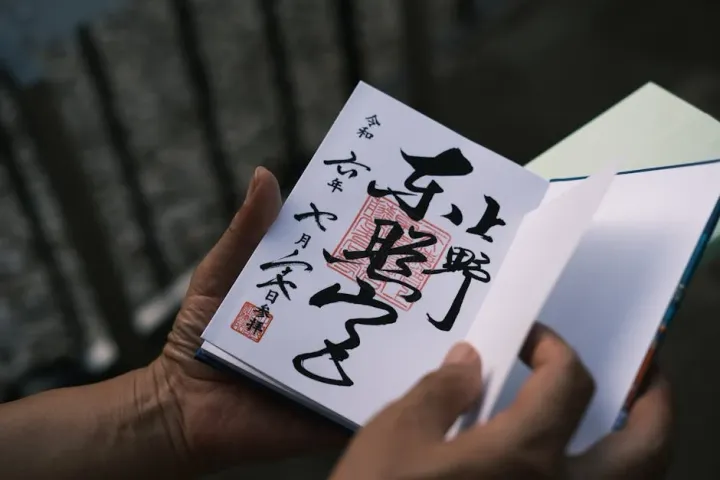 上野
東照宮
令和六年七月日参拝